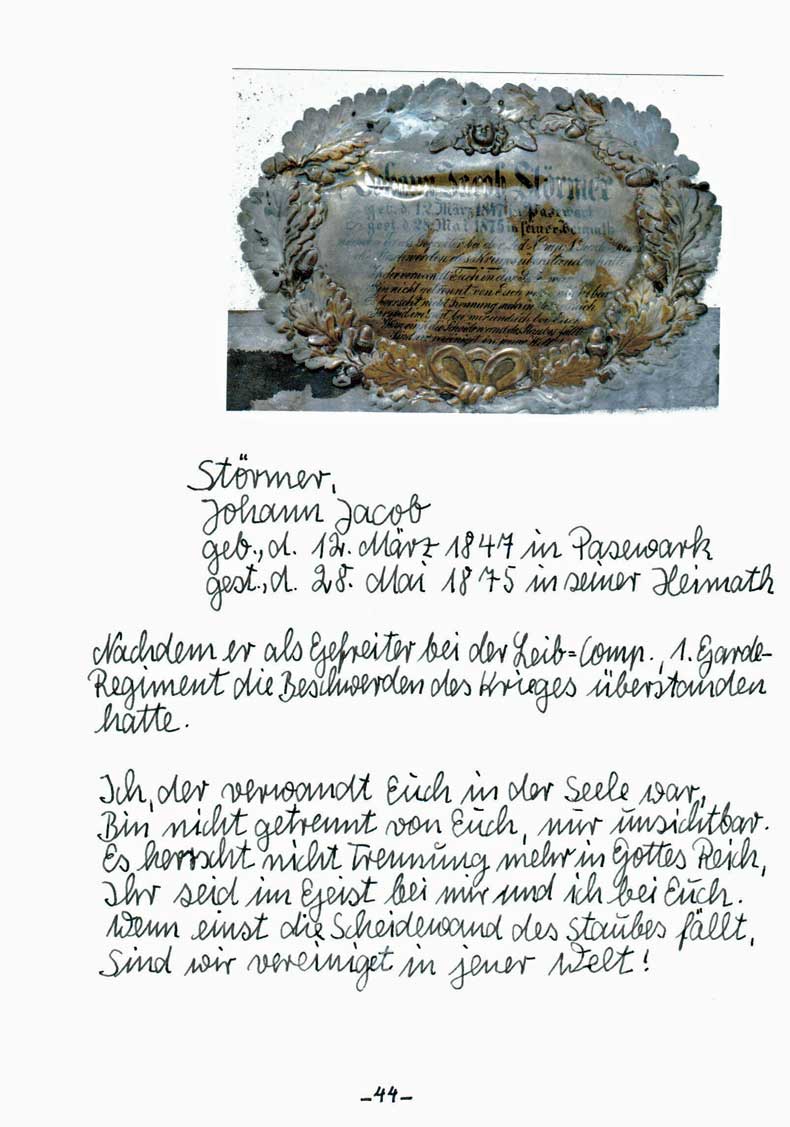 Johann Jacob Störmer
geb. d. 12. März 1847 in Pasewark
gest. d. 28. Mai 1875 in seiner Heimath
Störmer,
Johann Jacob
geb., d. 12. März 1847 in Pasewark
gest., d. 28. Mai 1875 in seiner Heimath
Nachdem er als Gefreiter bei der Leib=Comp., 1. Garde-
Regiment die Beschwerden des Krieges überstanden
hatte.
Ich, der verwandt Euch in der Seele war,
Bin nicht getrennt von Euch, nur unsichtbar.
Es herrscht nicht Trennung mehr in Gottes Reich,
Ihr seid im Geist bei mir und ich bei Euch.
Wenn einst die Scheidewand des Staubes fällt,
Sind wir vereiniget in jener Welt!
-44-